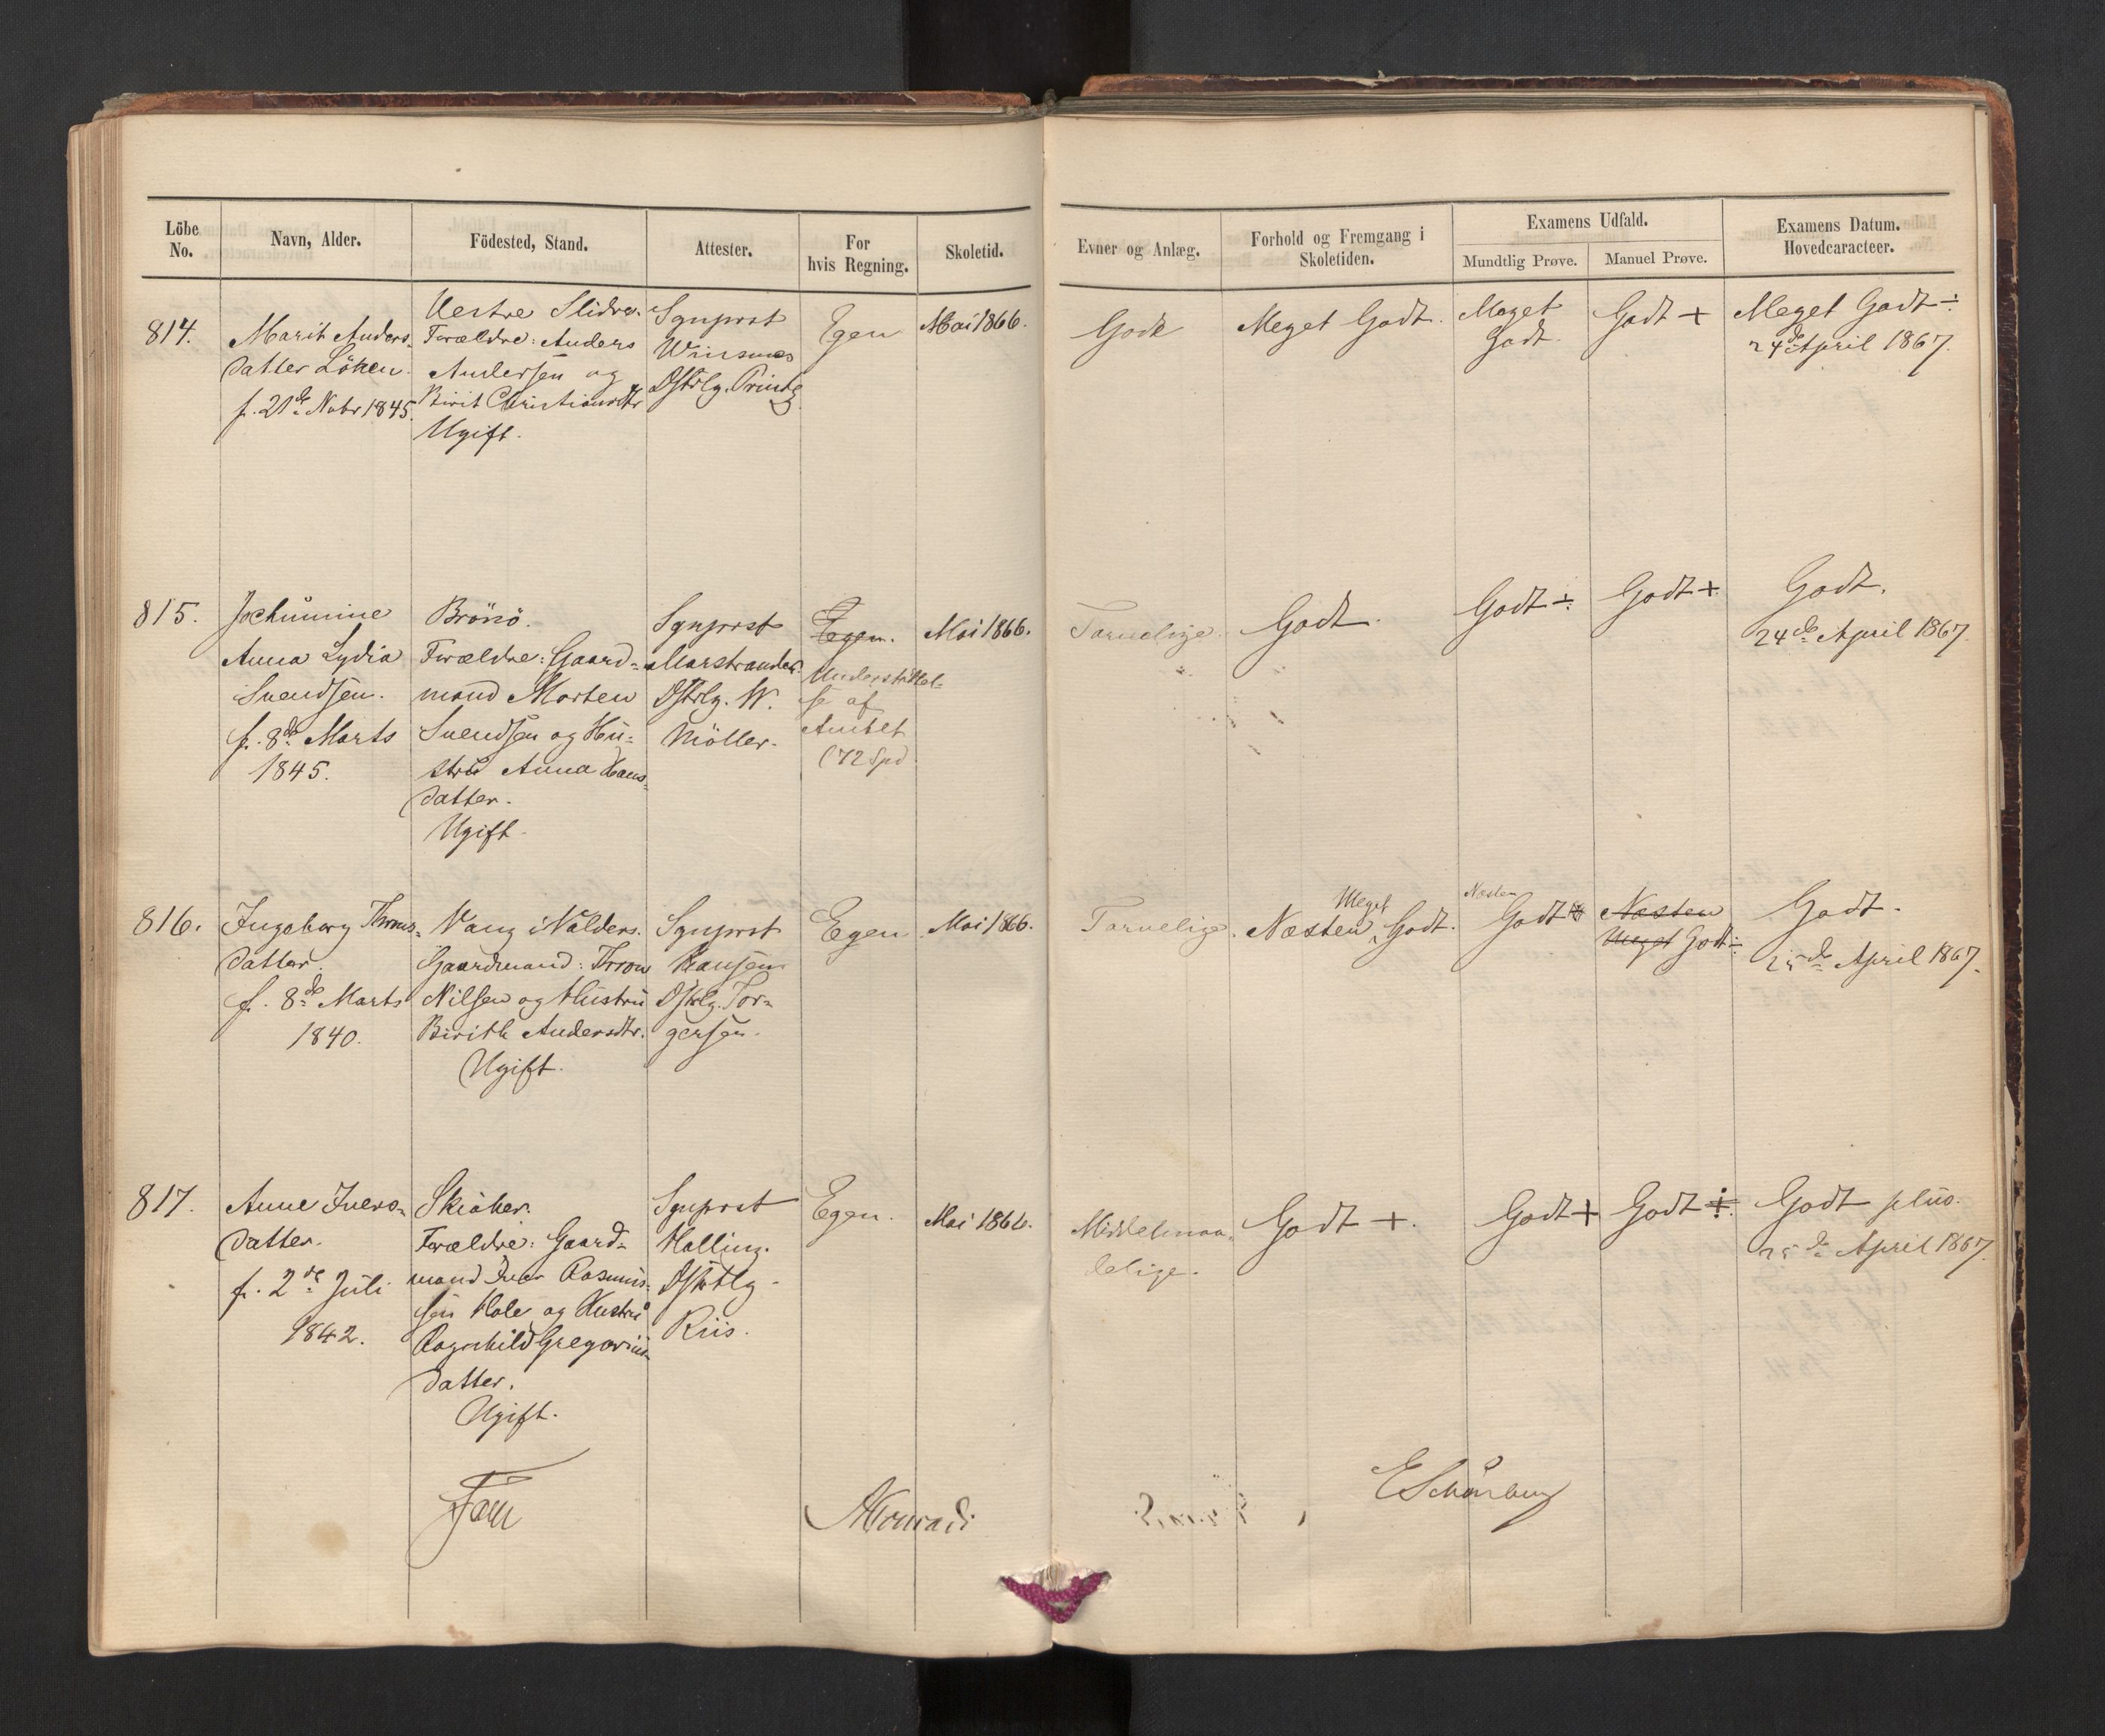 Löbe No.
Navn, Alder.
Födested, Stand.
Attester.
For hvis Regning.
Skoletid.
Evner og Anlæg.
Forhold og Fremgang i Skoletiden.
Examens Udfald.
Mundtlig Prøve.
Manuel Prøve.
Examens Datum. Hovedcaracteer.
814.
Marit Anders-
datter Löken.
f. 21de Novbr 1845.
Vestre Slidre.
Forældre: Anders
Andersen og
Birit Christiansdtr
Ugift.
Sgnprst
Dstrlg. Printz
Egen
Mai 1866.
Gode
Meget Godt.
Meget
Godt.
Godt +
Meget Godt ÷
24de April 1867.
815.
Jochumine
Anna Lydia
Svendsen.
f. 8de Marts
1845.
Brönö.
Forældre: Gaard-
mand Morten
Svendsen og Hu-
stru Anna Hans-
datter.
Ugift.
Sgnprst
Marstrander.
Dstrlg. W.
Möller.
Egen.
Understöttel-
se af
Amtet
(72 Spd
Mai 1866.
Tarvelige.
Godt.
Godt ÷
Godt +
Godt.
24de April 1867.
816.
Ingeborg Throns-
datter.
f. 8de Marts
1840.
Vang i Valders.
Gaardmand: Thron
Nilsen og Hustru
Birith Andersdtr.
Ugift.
Sgnprst
Hansen
Dstrlg. Tor-
gersen.
Egen
Mai 1866.
Tarvelige.
Meget
Næsten Godt.
Næsten
Godt
Næsten
Meget Godt ÷
Godt.
25de April 1867.
817.
Anne Ivers-
datter.
f. 2de Juli
1842.
Skiåker.
Forældre: Gaard-
mand Iver Rasmus-
sen Hole og Hustru
Ragnhild Gregorius-
datter.
Ugift.
Sgnprst
Halling.
Dstrtlg
Riis.
Egen.
Mai 1866.
Middelmaa-
delige.
Godt +.
Godt +
Godt ÷
Godt plus.
25de April 1867.
Faye
Conradi
E Schönberg